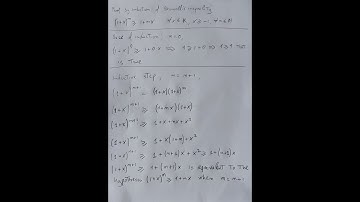 Proof by induction of Bernoulli's inequality
(1+x)^n ≥ 1+nx ∀ x ∈ R, x ≥ -1, n ∈ N
Base of induction: n=0,
(1+x)^0 ≥ 1+0·x ⟹ 1 ≥ 1+0 ⟹ 1 ≥ 1
is True
Inductive step, n = n+1,
(1+x)^{n+1} = (1+x)(1+x)^n
(1+x)^{n+1} ≥ (1+nx)(1+x)
(1+x)^{n+1} ≥
(1+x)^{n+1} ≥
(1+x)^{n+1} ≥ 1+(n+1)x
(1+x)^{n+1} ≥ 1+(n+1)x is equivalent to the
hypothesis (1+x)^n ≥ 1+nx when n=n+1